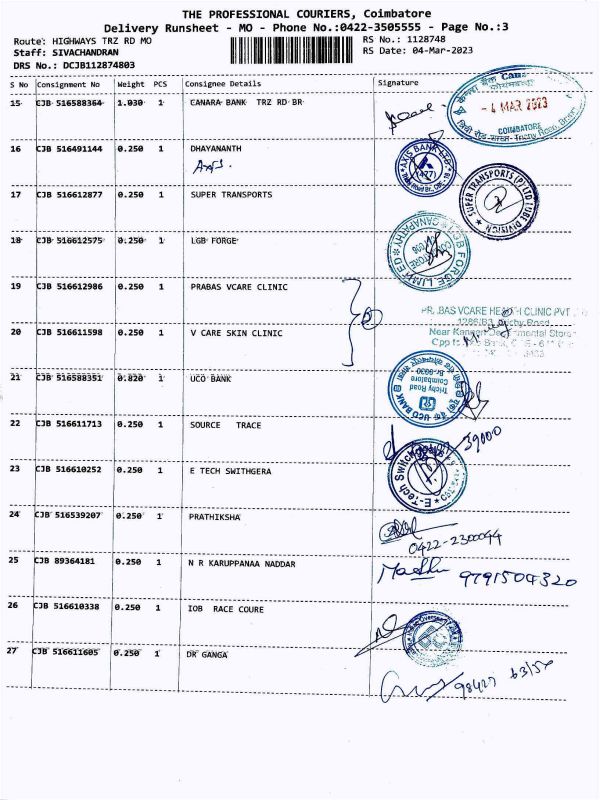 THE PROFESSIONAL COURIERS, Coimbatore
Delivery Runsheet - MO - Phone No.:0422-3505555 - Page No.:3
Route: HIGHWAYS TRZ RD MO
RS No.: 1128748
Staff: SIVACHANDRAN
RS Date: 04-Mar-2023
DRS No.: DCJB112874803
S No Consignment No Weight PCS Consignee Details Signature
15 CJB 516588364 1.030 1 CANARA BANK TRZ RD BR
- 4 MAR 2023
COIMBATORE
16 CJB 516491144 0.250 1 DHAYANANTH
AXIS BANK LTD.
(1477)
17 CJB 516612877 0.250 1 SUPER TRANSPORTS
SUPER TRANSPORTS (P) LTD
18 CJB 516612575 0.250 1 LGB FORGE
LGB FORGE LIMITED
GANAPATHY
19 CJB 516612986 0.250 1 PRABAS VCARE CLINIC
PRABAS VCARE HEALTH CLINIC PVT
1286/B3, Trichy Road
20 CJB 516611598 0.250 1 V CARE SKIN CLINIC
21 CJB 516588351 0.820 1 UCO BANK
UCO BANK
Trichy Road
Coimbatore
22 CJB 516611713 0.250 1 SOURCE TRACE
39000
23 CJB 516610252 0.250 1 E TECH SWITHGERA
E-Tech Switchgears
24 CJB 516539207 0.250 1 PRATHIKSHA
0422-2300044
25 CJB 89364181 0.250 1 N R KARUPPANAA NADDAR
Madhu 9791504320
26 CJB 516610338 0.250 1 IOB RACE COURE
27 CJB 516611605 0.250 1 DR GANGA
98427 63156